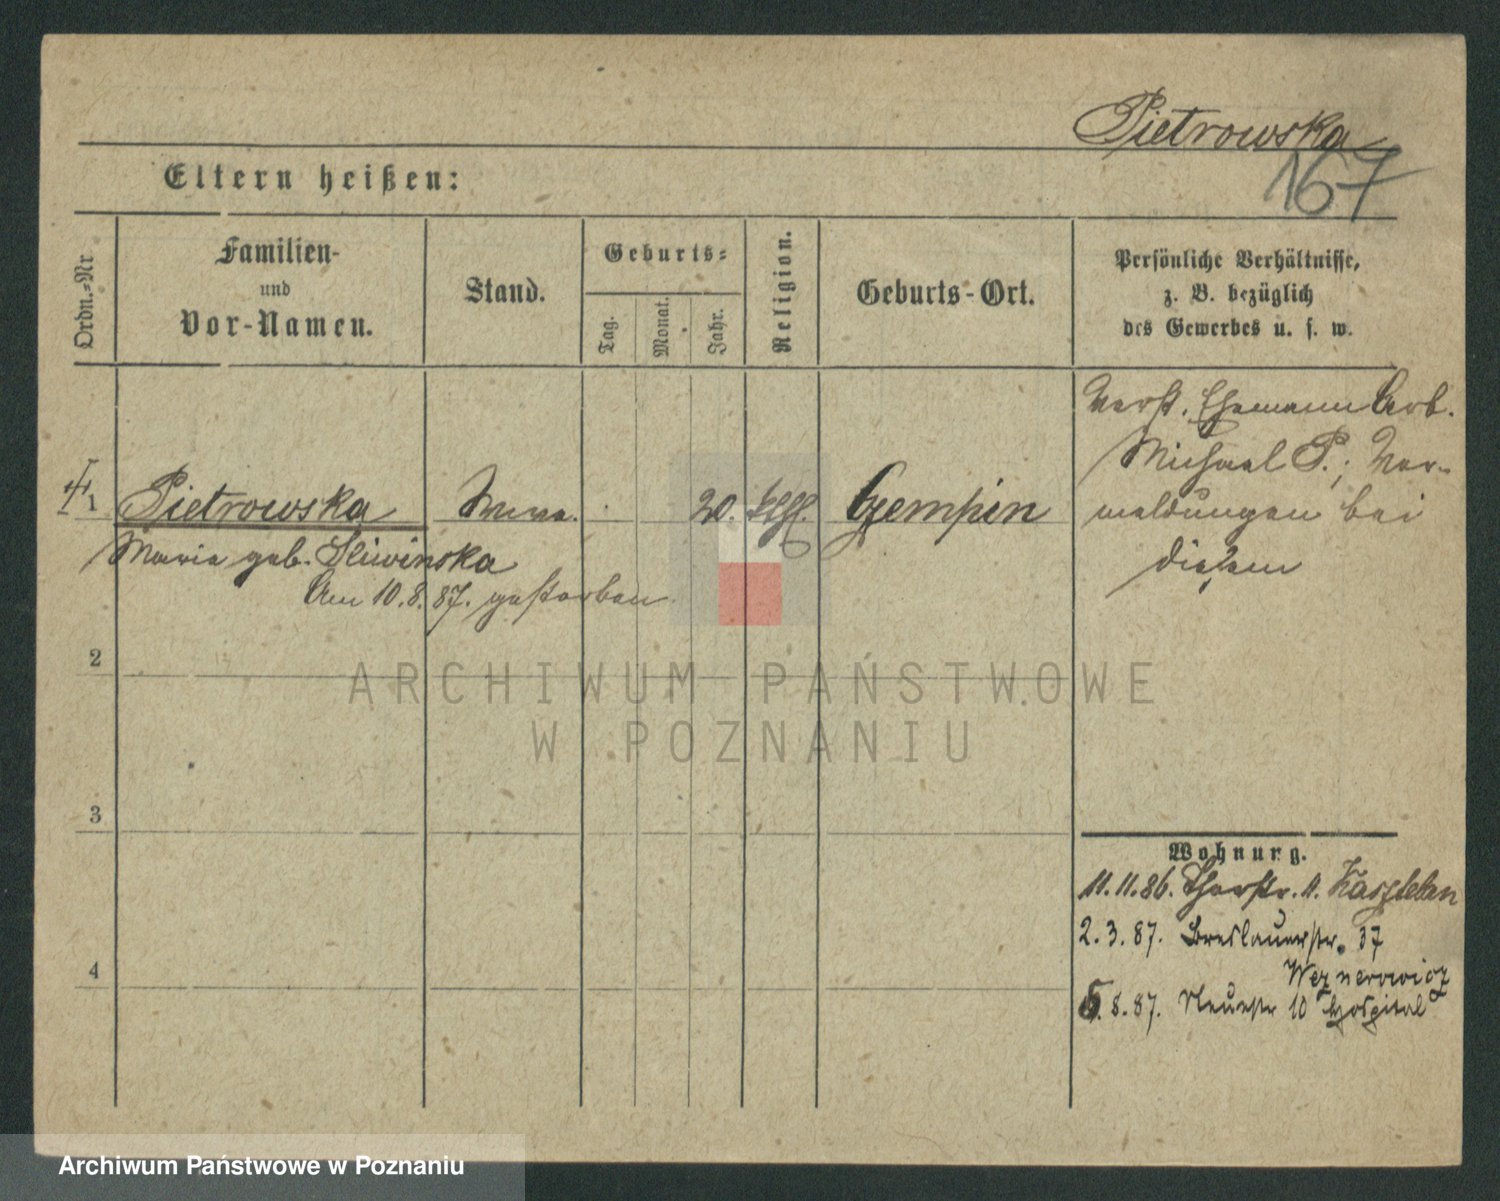 Pietrowska
167
Eltern heißen:
Ordn.=Nr
Familien-
und
Vor-Namen.
Stand.
Geburts=
Tag.
Monat.
Jahr.
Religion.
Geburts-Ort.
Persönliche Verhältnisse,
z. B. bezüglich
des Gewerbes u. s. w.
Verst. Ehemann Arb.
Michael P.; Ver-
meldungen bei
diesem
1
Pietrowska
20.
kthl.
Czempin
Maria geb. Sliwinska
Am 10.8.87. gestorben
2
ARCHIWUM PAŃSTWOWE
W POZNANIU
3
Wohnung.
11.11.86. Thorstr. 11.
2.3.87. Breslauerstr. 37
4
5.8.87. Neuestr 10 Hospital
Archiwum Państwowe w Poznaniu